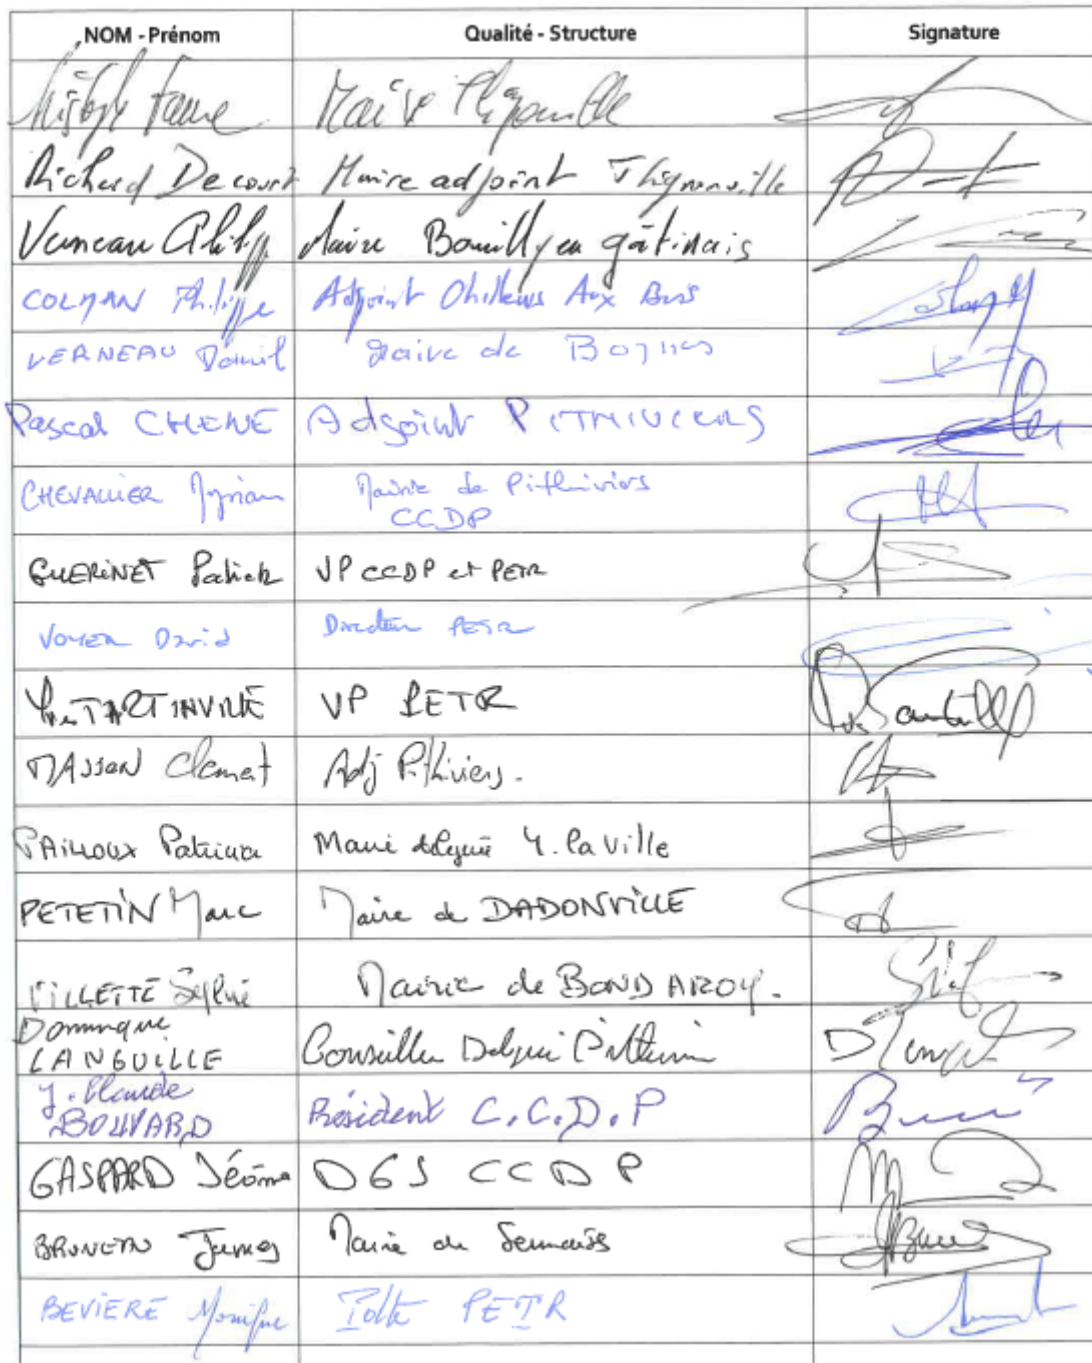 NOM - Prénom Qualité - Structure Signature
Christophe Faure Maire Thignonville
Richard Decourt Maire adjoint Thignonville
Verneau Philipp Maire Bouilly en gâtinais
COLMAN Philippe Adjoint Chilleurs Aux Bois
VERNEAU Daniel Maire de Boynes
Pascal CHENE Adjoint PITHIVIERS
CHEVALLIER Myriam Mairie de Pithiviers
CCDP
GUERINET Patrick VP CCDP et PETR
VOYER David Directeur PETR
Yves TARTINVILLE VP PETR
MASSON Clement Adj Pithiviers.
PAILLOUX Patricia Maire déléguée Y. la ville
PETETIN Marc Maire de DADONVILLE
VILLETTE Sylvie Mairie de BONDAROY.
Dominique
LANGUILLE Conseiller Délégué Pithiviers
J. Claude
BOUVARD Président C.C.D.P
GASPARD Jérôme DGS CCDP
BRUNEAU James Mairie de Sermaises
BEVIERE Monique PETR